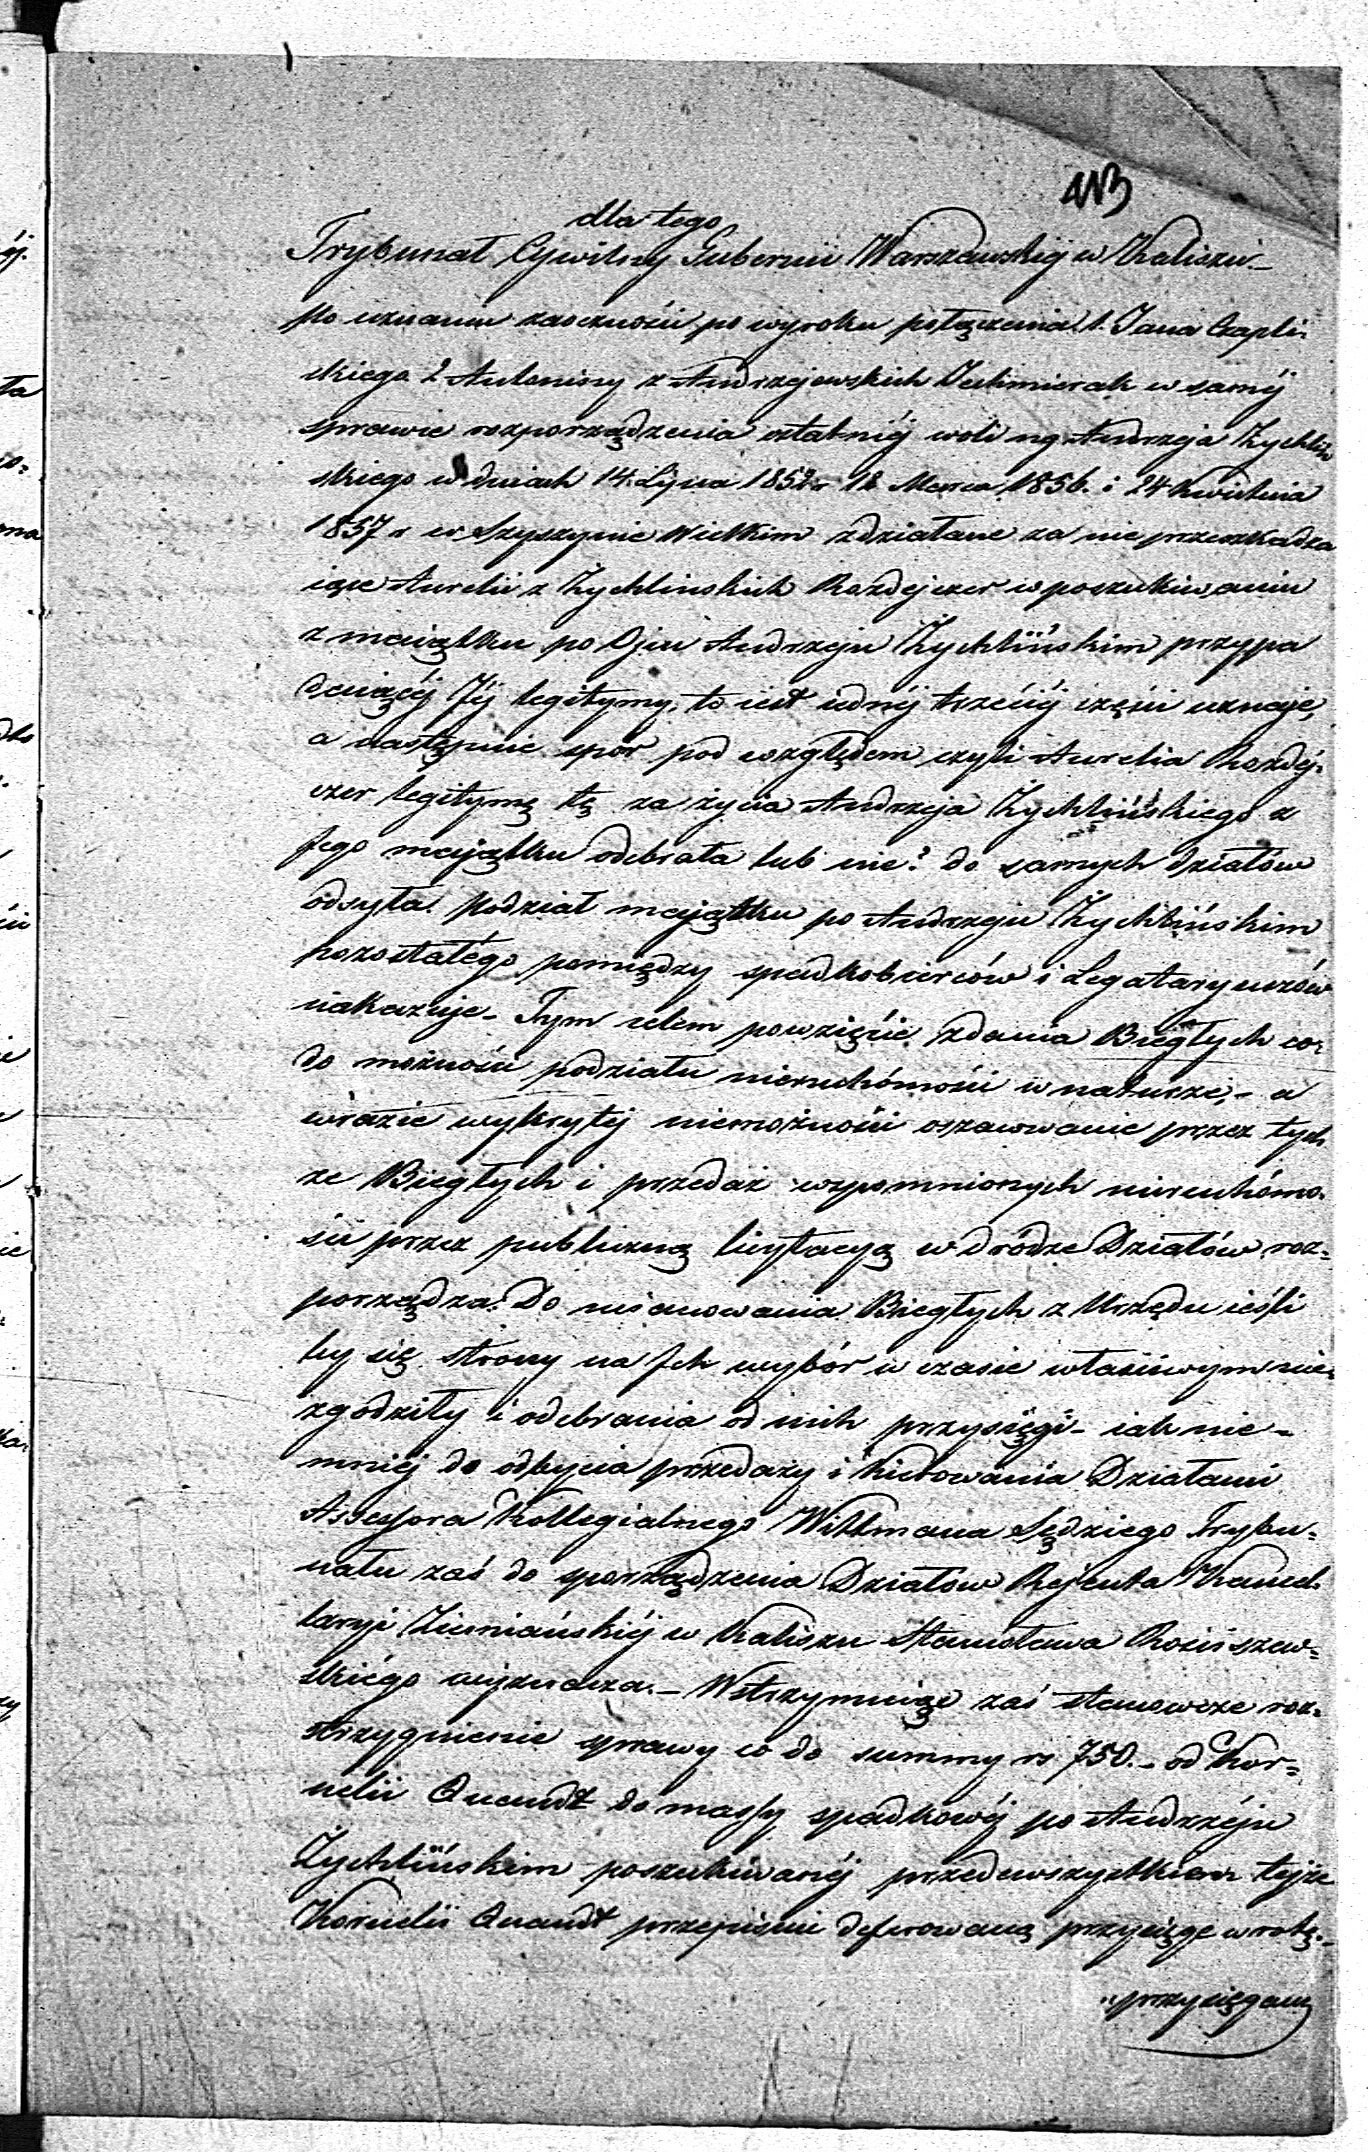 dla tego
Trybunał Cywilny Gubernii Warszawskiéj w Kaliszu._
po uznaniu zaoczności po wyroku połączenia 1. Jana Czapli-
ckiego 2 Antoniny z Andrzejewskich w saméj
sprawie rozporządzenia ostatniéj woli ng Andrzeja Zychliń
skiego w dniach 14. Lipca 1852 r 12 Marca 1856. i 24 Kwietnia
1857 r w Szyszynie Wielkim zdziałane za nie przeszkadza
iące Aurelii z Zychlinskich Rozdejczer w poszukiwaniu
z maiątku po Ojcu Andrzeju Żychlińskim przypa
daiącéj Jéj legitymy, to iest iednéj trzeciéj części uznaje,
a następnie spór pod względem czyli Aurelia Rozdéj-
czer legitymę tę za życia Andrzeja Zychlińskiego z
Jego majątku odebrała lub nie? do samych działów
odsyła. Podział majątku po Andrzeju Zychlińskim
pozostałégo pomiędzy spadkobierców i Legataryuszów
nakazuje_ Tym celem powzięcie zdania Biegłych co-
do możności podziału nieruchómości w naturze,- a
wrazie wykrytéj niemożności oszacowanie przez tych
że Biegłych i przedaż wspomnionych nieruchómo-
ści przez publiczną licytacyą w dródze Działów roz=
porządza. Do mianowania Biegłych z Urzędu ieśli
by się strony na Ich wybór w czasie właściwym nie=
zgodziły i odebrania od nich przysięgi_ iak nie=
mniéj do odbycia przedaży i kierowania Działami
Assessora Kollegialnego Wittmana Sędziego Trybu=
nału zaś do sporządzenia Działów Rejenta Kancel-
laryi Ziemiańskiéj w Kaliszu Stanisława Rościszew=
skiégo wyznacza._ Wstrzymuiąc zaś stanowcze roz=
strzygnienie sprawy co do summy rs 750._ od Kor=
nelii Quandt do massy spadkowéj po Andrzéju
Żychlińskim poszukiwanéj przedewszystkiem tejże
Kornelii Quandt przepisuie deferowaną przysięgę w rotę._
"przysięgam